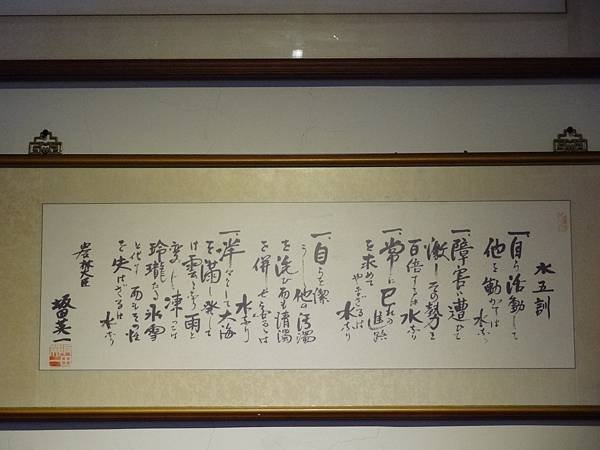 水五訓
一、自ら活動して
他を動かすは 水なり
一、障害に遭ひて
激しその勢力を
百倍するは水なり
一、常に己れの進路
を求めて やまざるは 水なり
一、自ら潔
うし他の汚濁
を洗ひ而も清濁
を併せ容るゝは
水なり
一、洋々として大海
を満し発して
は雲となり雨と
変じ凍っては
玲瓏たる氷雪
と化す 而もその性
を失はざるは 水なり
坂田英一